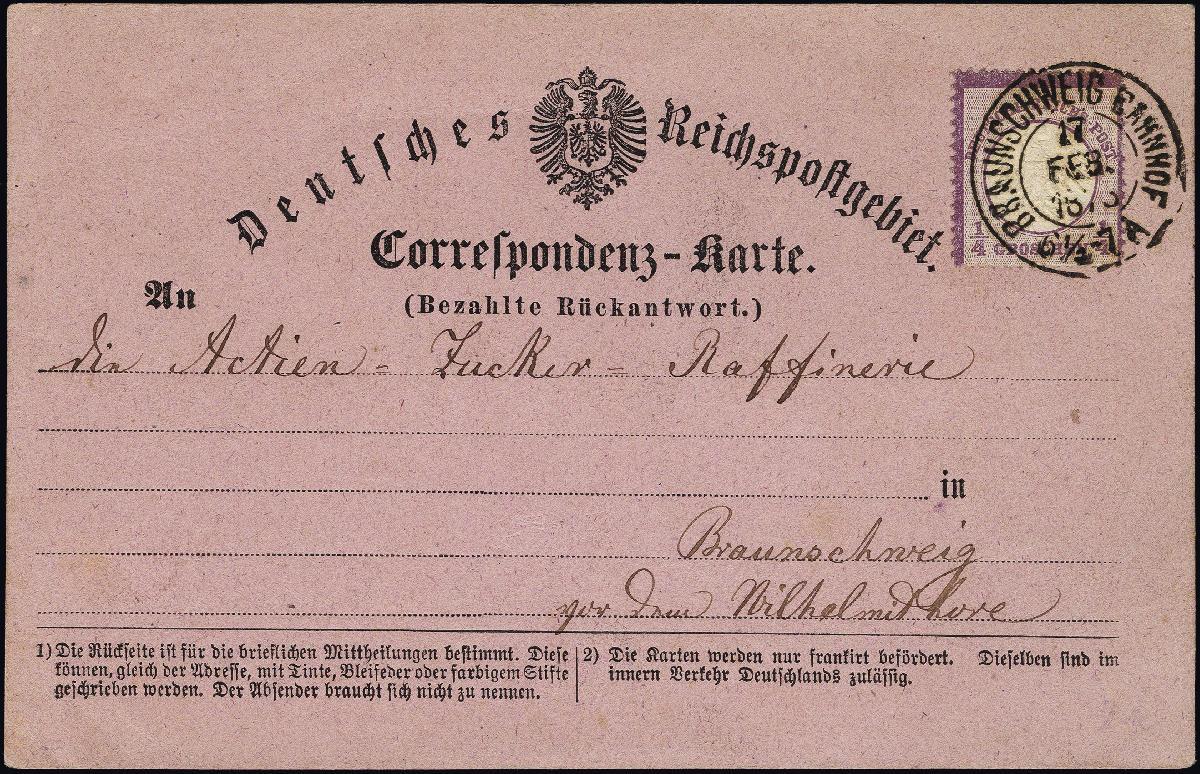 Deutsches Reichspostgebiet.
Correspondenz-Karte.
(Bezahlte Rückantwort.)
BRAUNSCHWEIG BAHNHOF
17
FEB.
187
6½-7
1/4 GROS
An
die Actien-Zucker-Raffinerie
in
Braunschweig
vor dem Wilhelmithore
1) Die Rückseite ist für die brieflichen Mittheilungen bestimmt. Diese
können, gleich der Adresse, mit Tinte, Bleifeder oder farbigem Stifte
geschrieben werden. Der Absender braucht sich nicht zu nennen.
2) Die Karten werden nur frankirt befördert. Dieselben sind im
innern Verkehr Deutschlands zulässig.